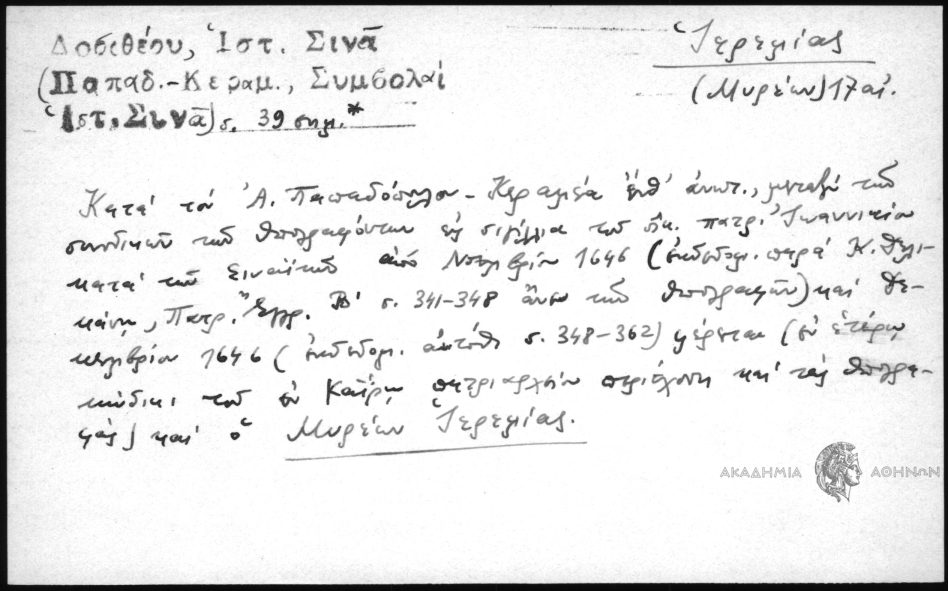 Δοσιθέου, Ἱστ. Σινᾶ
(Παπαδ.-Κεραμ., Συμβολαί
Ἱστ. Σινᾶ) σ. 39 σημ.*
Ἱερεμίας
(Μυρέων) 17 αἰ.
Κατά τόν Ἀ. Παπαδόπουλον-Κεραμέα ἔνθ' ἀνωτ., μεταξύ τῶν
συνοδικῶν τῶν ὑπογραφόντων εἰς σιγίλλια τοῦ οἰκ. πατρ. Ἰωαννικίου
κατά τῶν Σιναϊτῶν ἀπό Νοεμβρίου 1646 (ἐκδεδομ. παρά Κ. Δελι-
κάνη, Πατρ. Ἔγγρ. Β' σ. 341-348 ἄνευ τῶν ὑπογραφῶν) καί Δε-
κεμβρίου 1646 (ἐκδεδομ. αὐτόθι σ. 348-362) φέρεται (ἐν ἑτέρῳ
κώδικι τοῦ ἐν Καΐρῳ πατριαρχείου περιέχοντι καί τάς ὑπογρα-
φάς) καί ὁ Μυρέων Ἱερεμίας.
ΑΚΑΔΗΜΙΑ ΑΘΗΝΩΝ